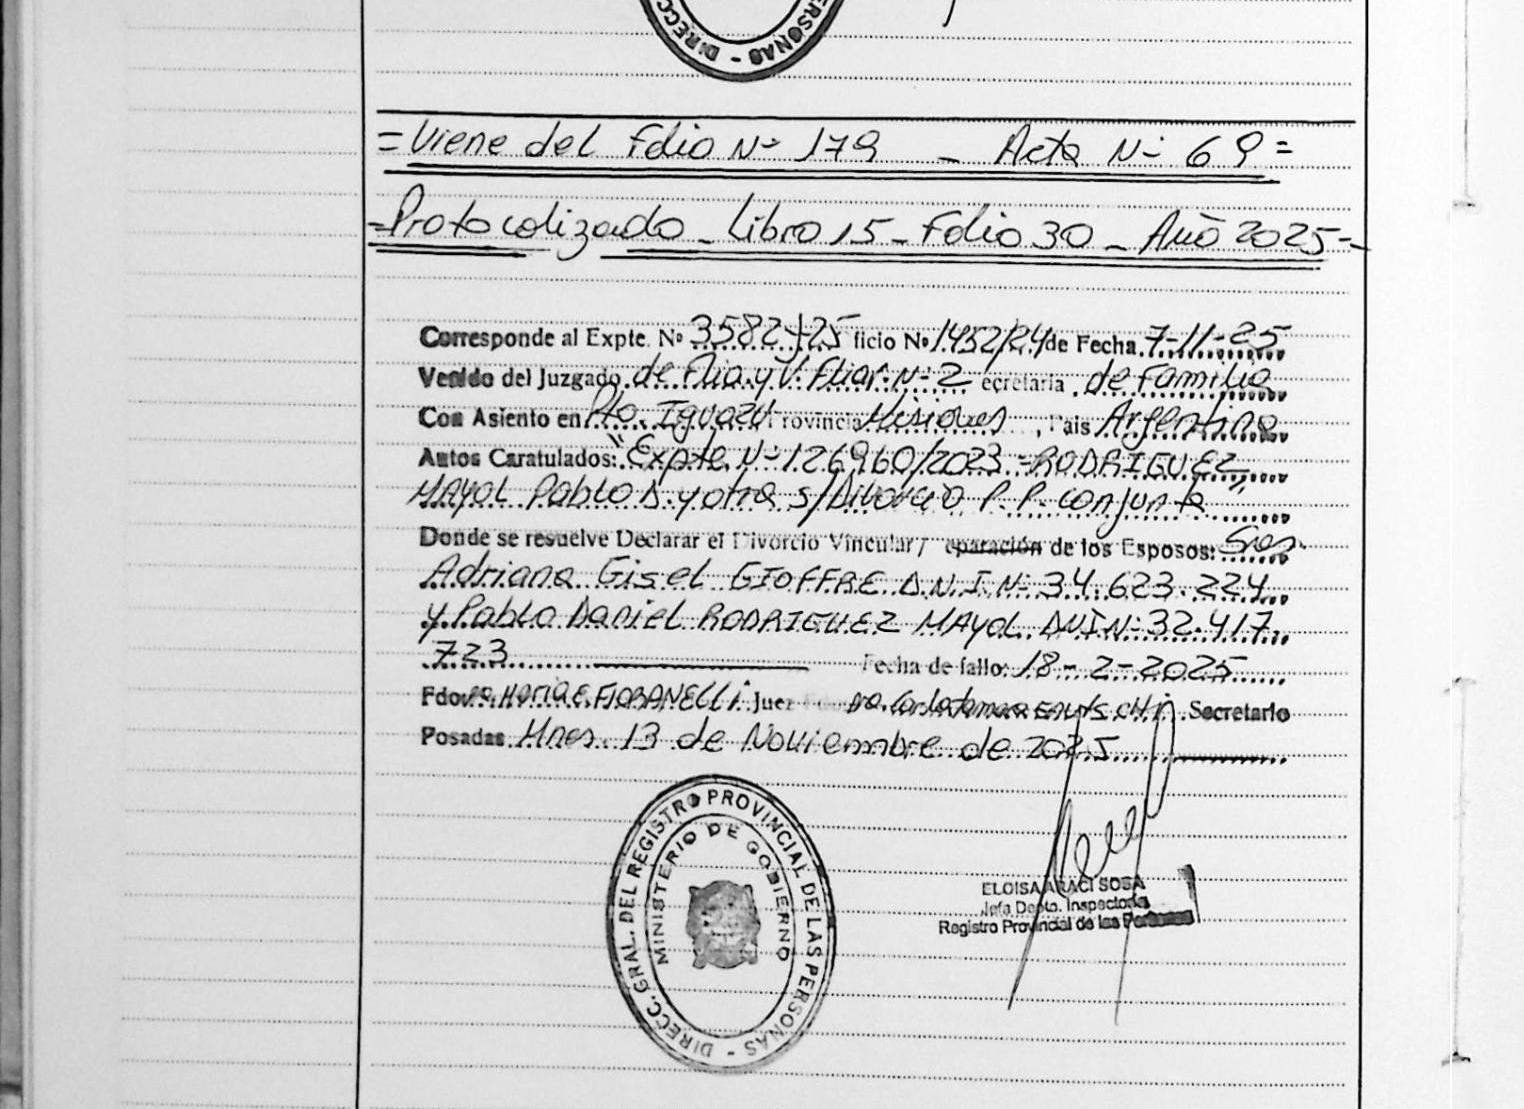 DIRECC. PERSONAS -
= Viene del Folio Nº 179 - Acta Nº 69 =
= Protocolizado - Libro 15 - Folio 30 - Año 2025 = -
Corresponde al Expte. Nº 3582-J-25 ficio Nº 1452/24 de Fecha 7-11-25
Venido del Juzgado de Flia. y V. Fliar. Nº 2 ecretaria de Familia
Con Asiento en Pto. Iguazú Provincia Misiones, Pais Argentina
Autos Caratulados: "Expte. Nº 126960/2023 - RODRIGUEZ
MAYOL Pablo D. y otra s/Divorcio P. P. Conjunta"
Donde se resuelve Declarar el Divorcio Vincular / eparación de los Esposos: Sres.
Adriana Gisel GIOFFRE D.N.I. Nº 34.623.224
y Pablo Daniel RODRIGUEZ MAYOL DNI Nº 32.417.
723 Fecha de fallo: 18-2-2025
Fdo. Juez Secretario
Posadas Mnes. 13 de Noviembre de 2025
DIRECC. GRAL. DEL REGISTRO PROVINCIAL DE LAS PERSONAS -
MINISTERIO DE GOBIERNO
ELOISA ARACI SOSA
Jefa Depto. Inspectoría
Registro Provincial de las Personas